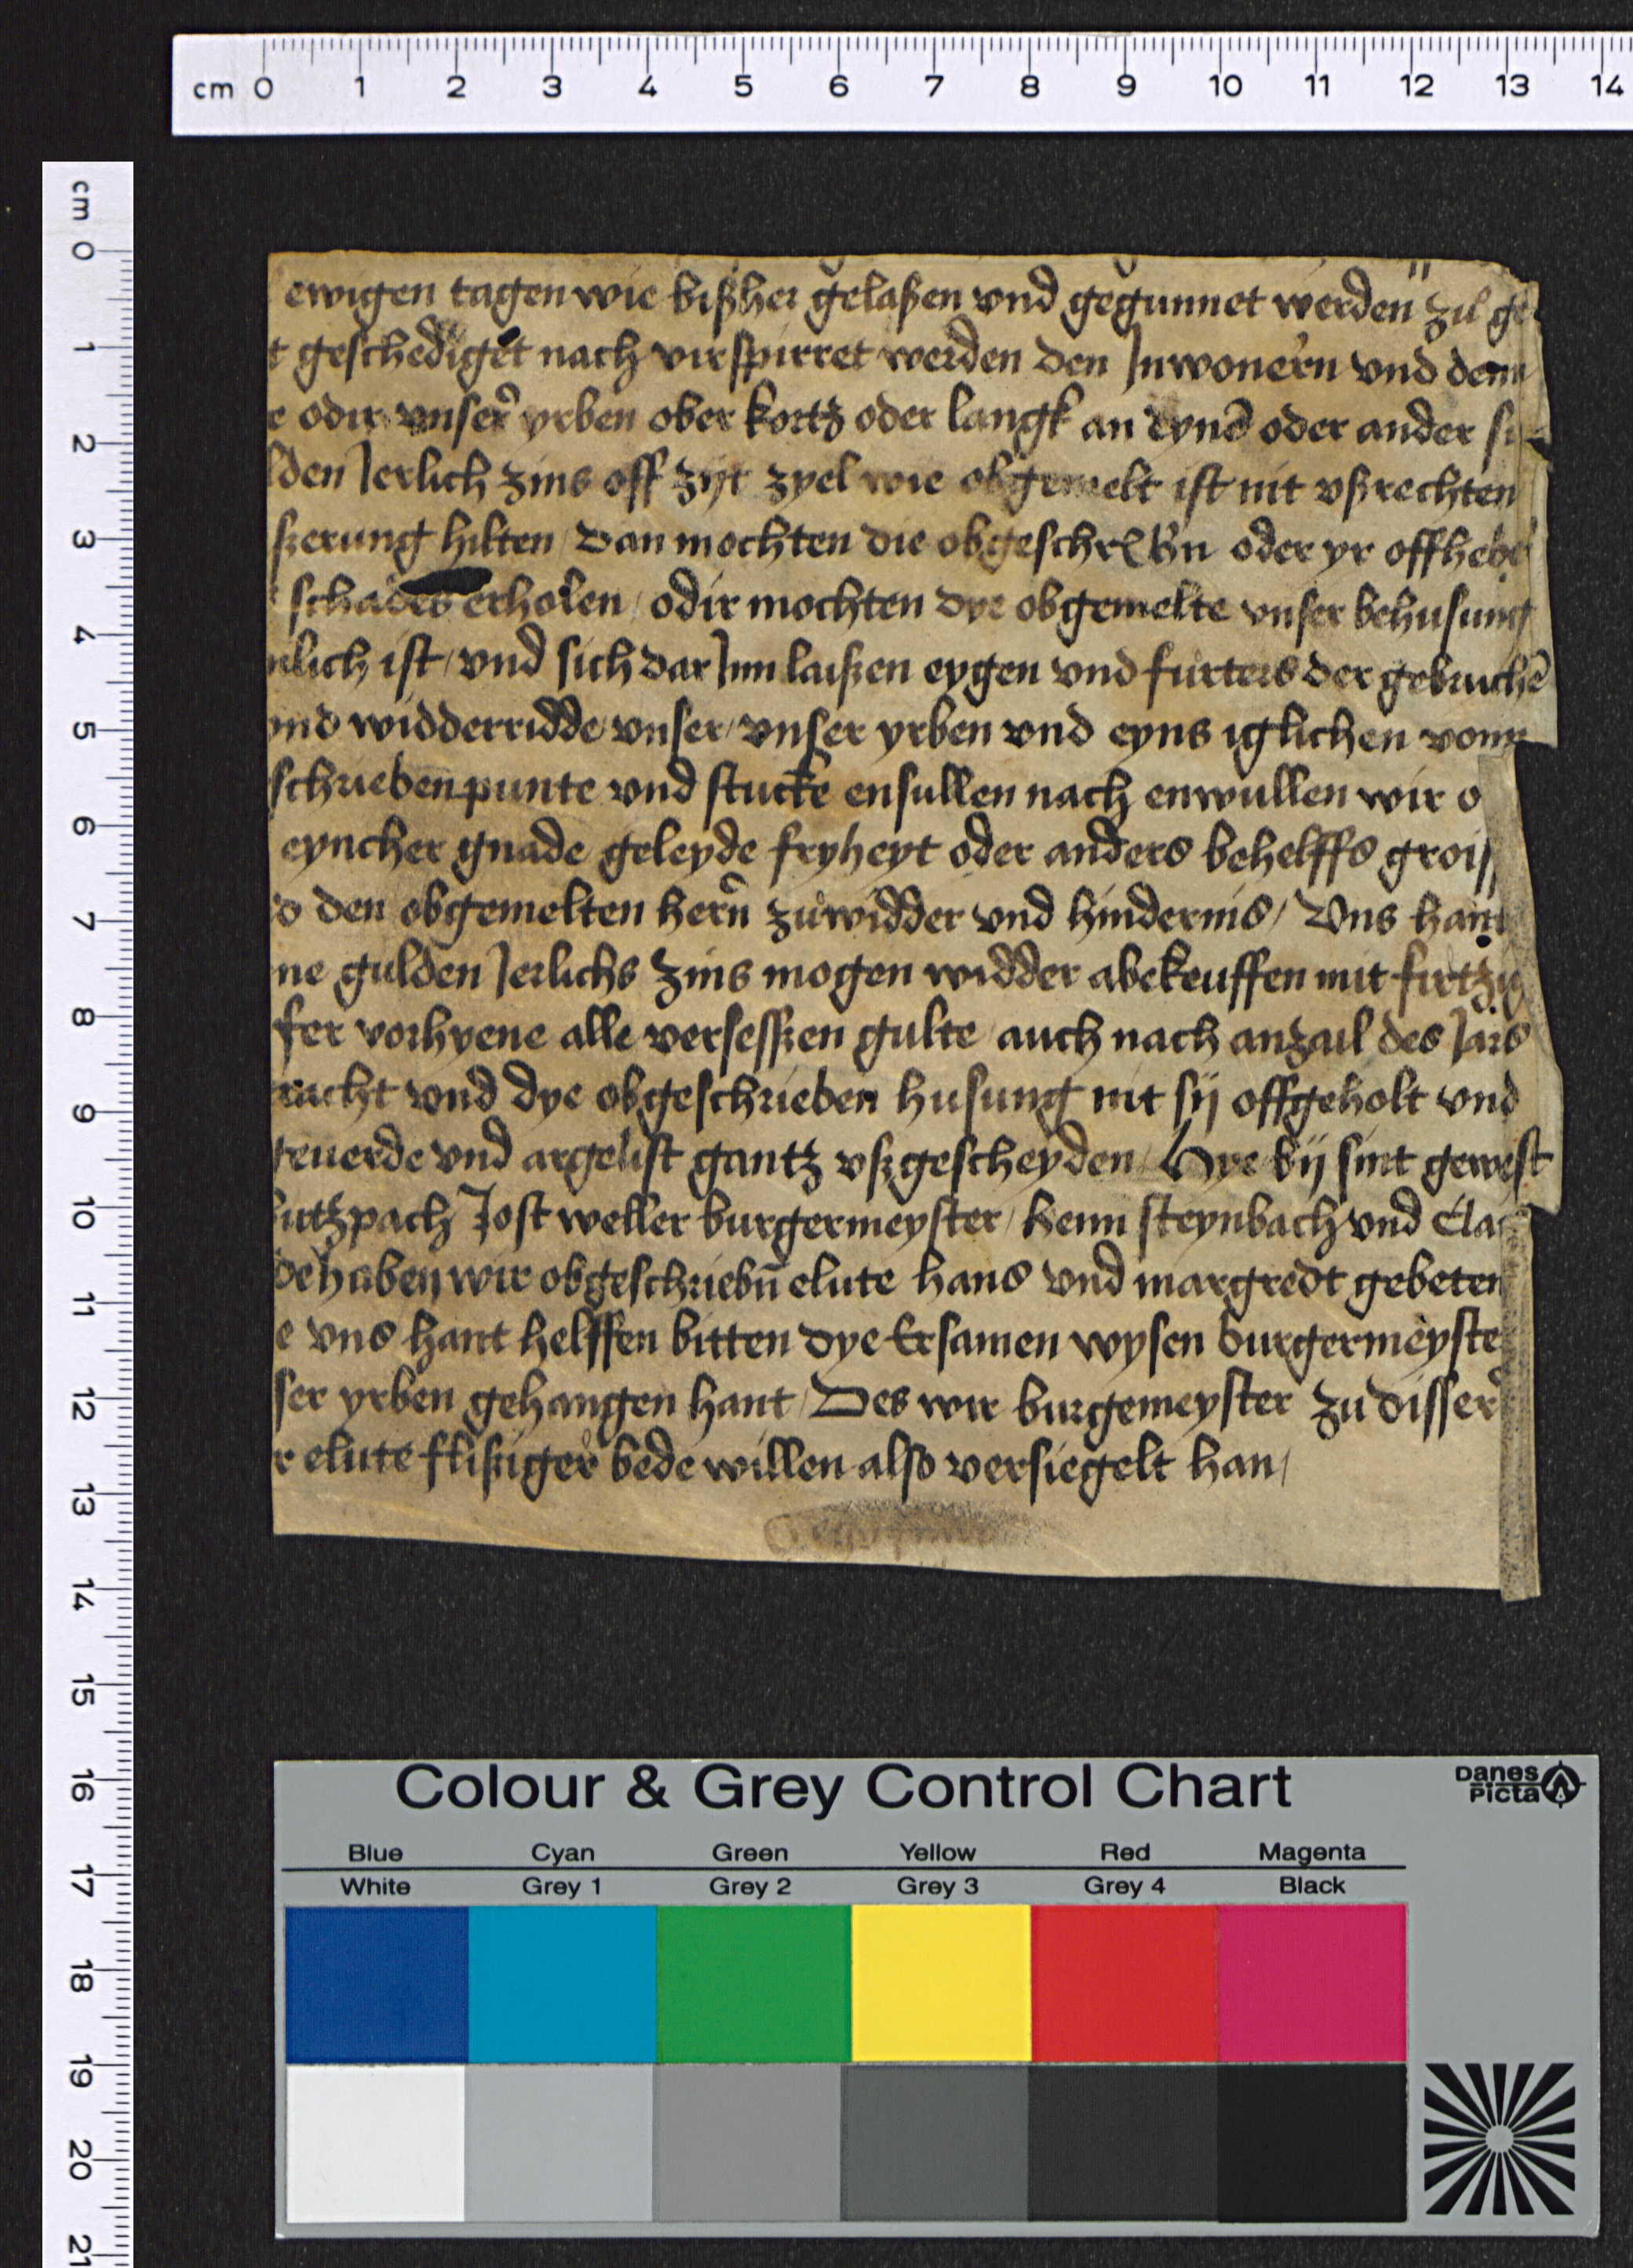 cm 0 1 2 3 4 5 6 7 8 9 10 11 12 13 14
cm 0 1 2 3 4 5 6 7 8 9 10 11 12 13 14 15 16 17 18 19 20 21
ewigen tagen wie bißher gelaßen vnd gegunnet werden zu ge
t geschediget nach virspirret werden den Inwonern vnd dem
e odir vnser yrben ober kortz oder langk an eynē oder ander
lden Jerlich zins off zijt zyel wie obgemelt ist nit vßrechten
ßerung hilten / Dan mochten die obgeschr bn oder yr offhebe
schades erholen / odir mochten dye obgemelte vnser behusung
nlich ist / vnd sich dar Jnn laißen eygen vnd furters der gebruchē
vnd widderridde vnser / vnser yrben vnd eyns iglichen vonn
schrieben punte vnd stucke ensullen nach enwullen wir o
eyncher gnade geleyde fryheyt oder anders behelffs groiß
o den obgemelten hern̄ zuwidder vnd hindernis / Vns hant
ne gulden Jerlichs zins mogen widder abekeuffen mit firtzig
fer vorhyene alle versessßen gulte / auch nach anzail des Jars
racht vnd dye obgeschrieben husung nit sij offgeholt vnd
euerde vnd argelist gantz vßgescheyden / Hye bij sint gewest
utzpach Jost weller burgermeyster / henn steynbach vnd Cla
de haben wir obgeschriebn̄ elute hans vnd margredt gebeten
e vns hant helffen bitten dye Ersamen wysen burgermeyste
ser yrben gehangen hant / Des wir burgemeyster zu disser
r elute flißiger bede willen also versiegelt han /
Colour & Grey Control Chart
Danes Picta
Blue Cyan Green Yellow Red Magenta
White Grey 1 Grey 2 Grey 3 Grey 4 Black